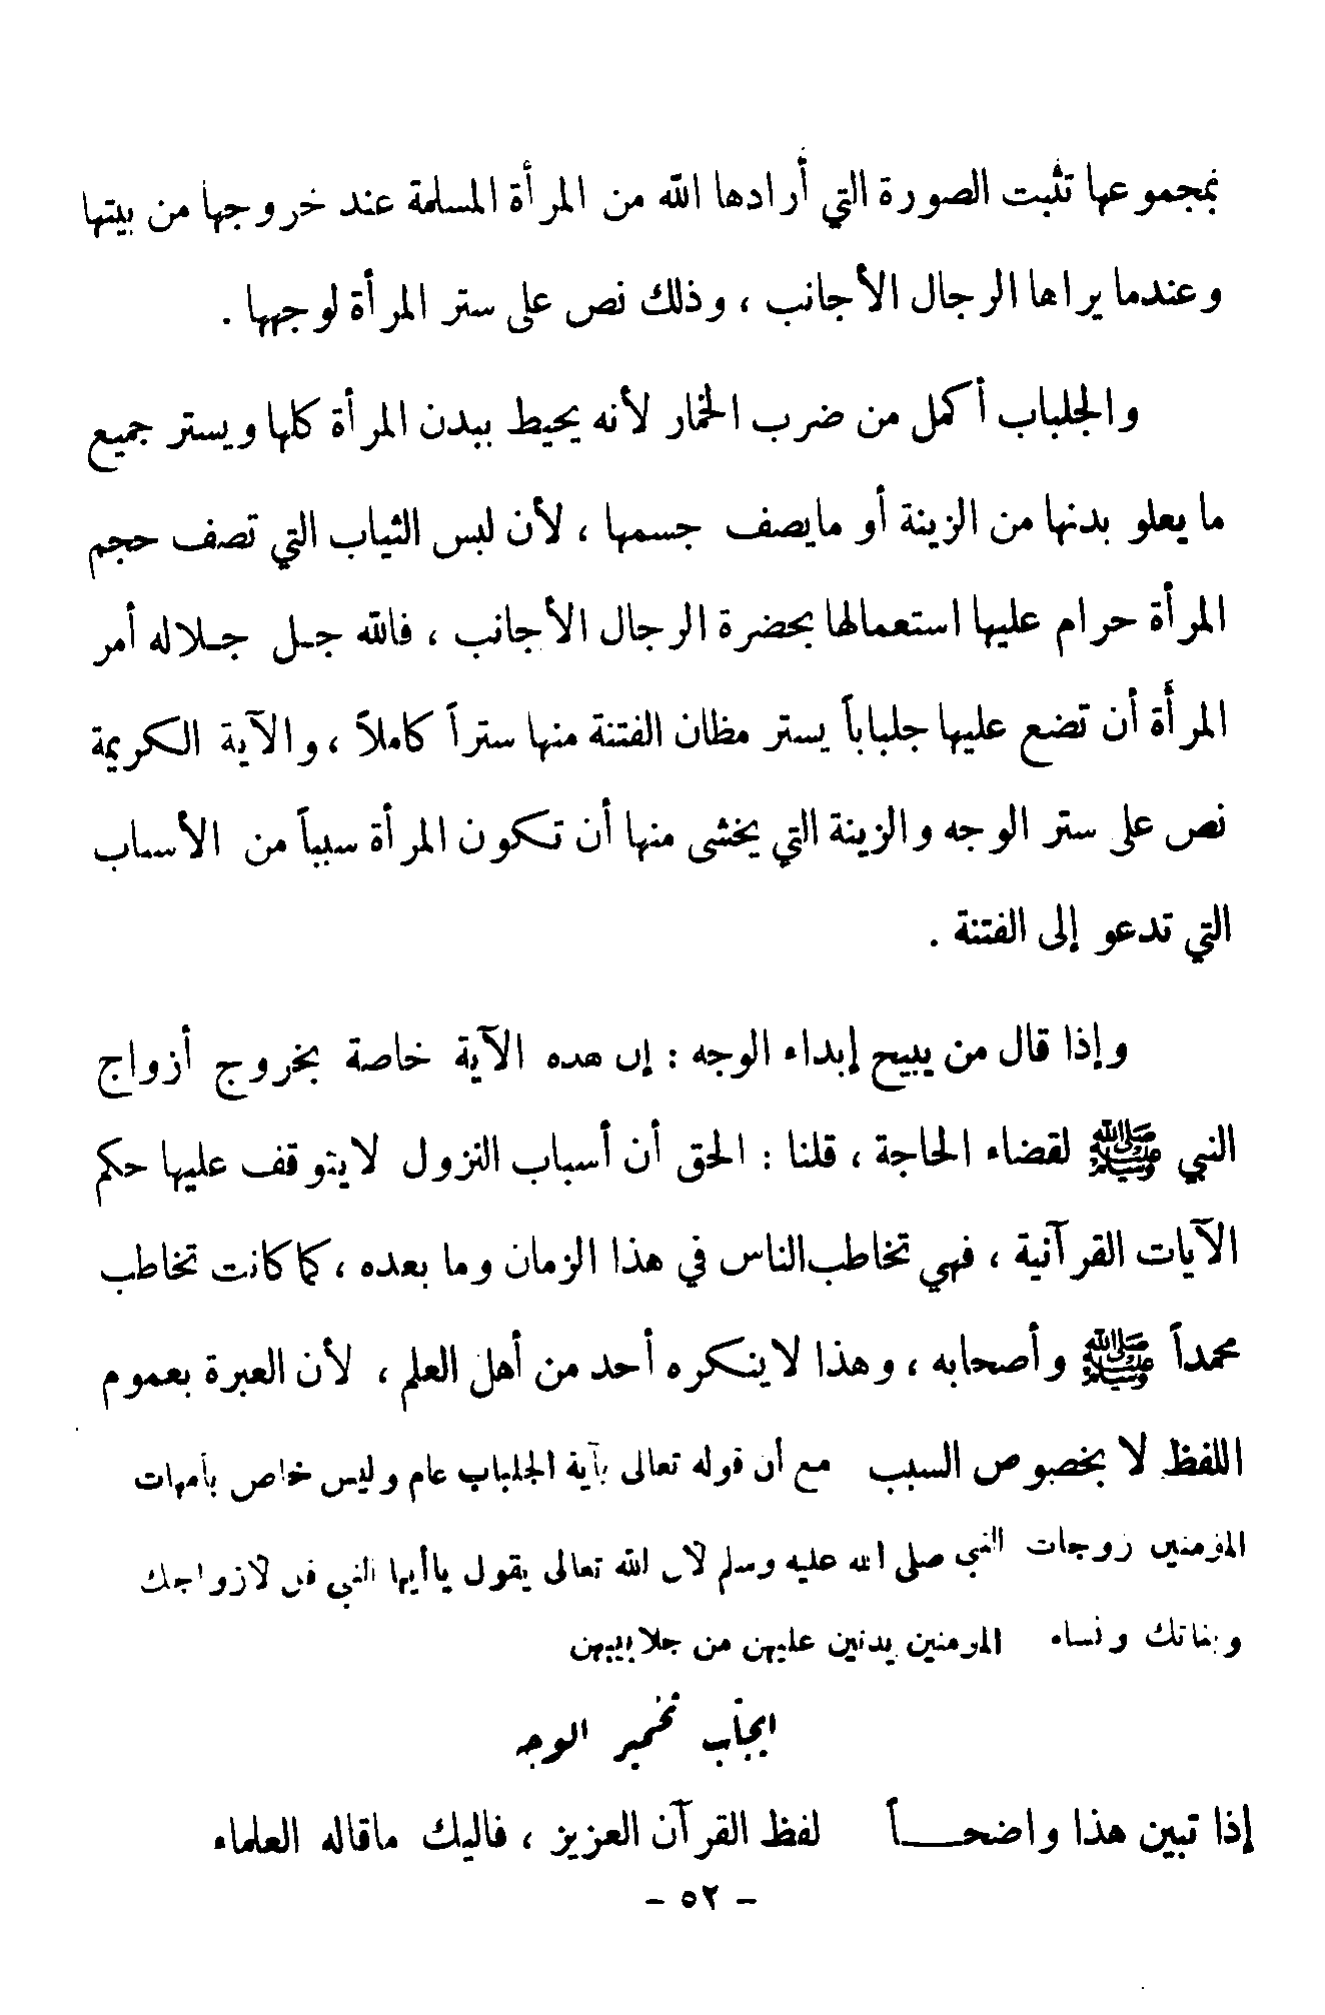 بمجموعها تثبت الصورة التي أرادها الله من المرأة المسلمة عند خروجها من بيتها
وعندما يراها الرجال الأجانب ، وذلك نص على ستر المرأة لوجهها .
والجلباب أكمل من ضرب الخمار لأنه يحيط ببدن المرأة كلها ويستر جميع
ما يعلو بدنها من الزينة أو مايصف جسمها ، لأن لبس الثياب التي تصف حجم
المرأة حرام عليها استعمالها بحضرة الرجال الأجانب ، فالله جل جلاله أمر
المرأة أن تضع عليها جلباباً يستر مظان الفتنة منها ستراً كاملاً ، والآية الكريمة
نص على ستر الوجه والزينة التي يخشى منها أن تكون المرأة سبباً من الأسباب
التي تدعو إلى الفتنة .
وإذا قال من يبيح إبداء الوجه : إن هذه الآية خاصة بخروج أزواج
النبي ﷺ لقضاء الحاجة ، قلنا : الحق أن أسباب النزول لايتوقف عليها حكم
الآيات القرآنية ، فهي تخاطب الناس في هذا الزمان وما بعده ، كما كانت تخاطب
محمداً ﷺ وأصحابه ، وهذا لاينكره أحد من أهل العلم ، لأن العبرة بعموم
اللفظ لا بخصوص السبب مع أن قوله تعالى بآية الجلباب عام وليس خاص بأمهات
المؤمنين زوجات النبي صلى الله عليه وسلم لان الله تعالى يقول ياأيها النبي قل لازواجك
وبناتك ونساء المومنين يدنين عليهن من جلابيبهن
ايجاب تخمير الوجه
إذا تبين هذا واضحـــــاً لفظ القرآن العزيز ، فاليك ماقاله العلماء
- ٥٢ -